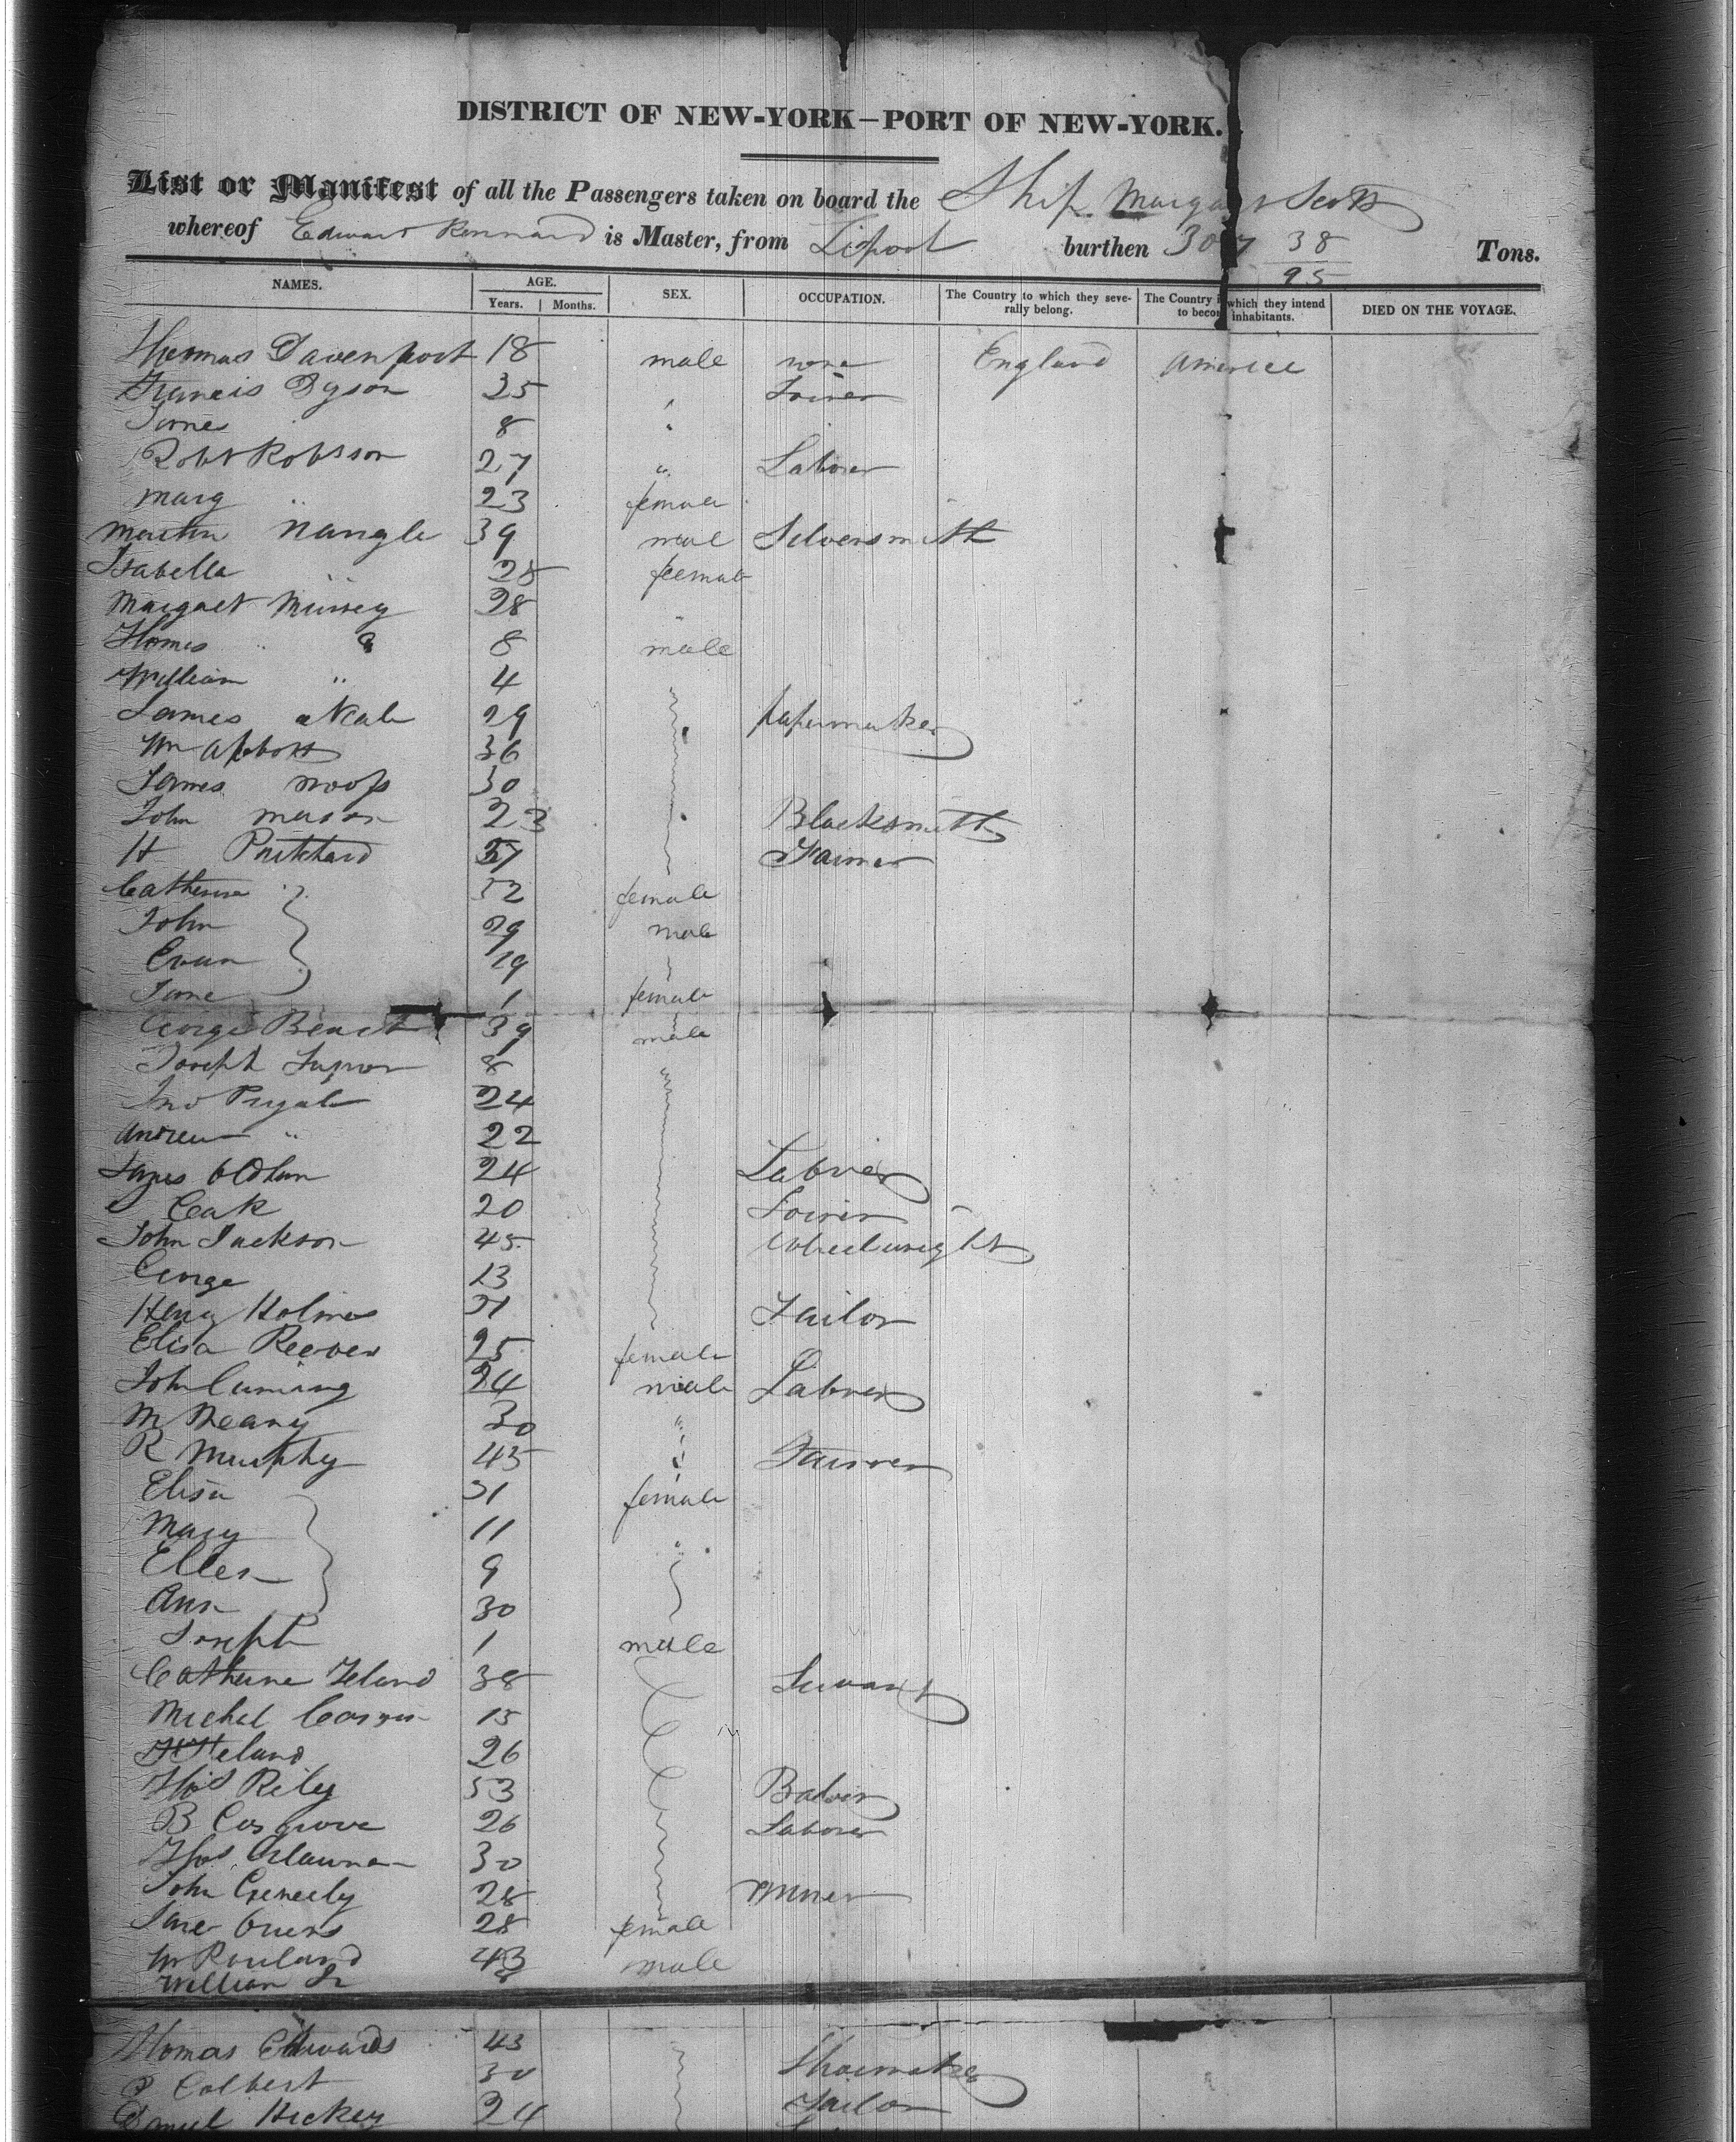 DISTRICT OF NEW-YORK—PORT OF NEW-YORK.
List or Manifest of all the Passengers taken on board the Ship Margart Scott
whereof Edward Kennard is Master, from Lipool burthen 307 38/95 Tons.
NAMES. AGE. Years. Months. SEX. OCCUPATION. The Country to which they severally belong. The Country in which they intend to become inhabitants. DIED ON THE VOYAGE.
Thomas Davenport 18 male none England America
Francis Dyson 35 " Joiner
8 "
Robt Robsson 27 " Laborer
Marg " 23 female
Martin Nangle 39 male Silversmith
Isabella " 28 female
Margaet 28 "
Thomas " 8 male
William " 4
James 29 papermaker
Wm Abbott 36
James 30
John mason 23 Blacksmith
H Pritchard Farmer
Catherine 32 female
John 29 male
Evan 19
Jane 1 female
George 39 male
Joseph 8
Jno 24
Andrew " 22
James Oldham 24 Laborer
20 Joiner
John Jackson 45 Wheelwright
George 13
Henry Holmes Tailor
Elisa Reeves 25 female
John Cuming 24 male Laborer
M Neary 30 "
R Murphy 45 " Farmer
Elisa 31 female
Mary 11 "
Ellen 9
Ann 30
Joseph 1 male
Catherine 38 Servant
Michel 15
26
Thos Riley 53
B Cosgrove 26 Laborer
Thos 30
John 28 Miner
Jane Owens 28 female
Wm Rowland 43 male
William Jr 8
Thomas Edwards 43 Shoemaker
P Colbert 30 Tailor
Daniel Hickey 24